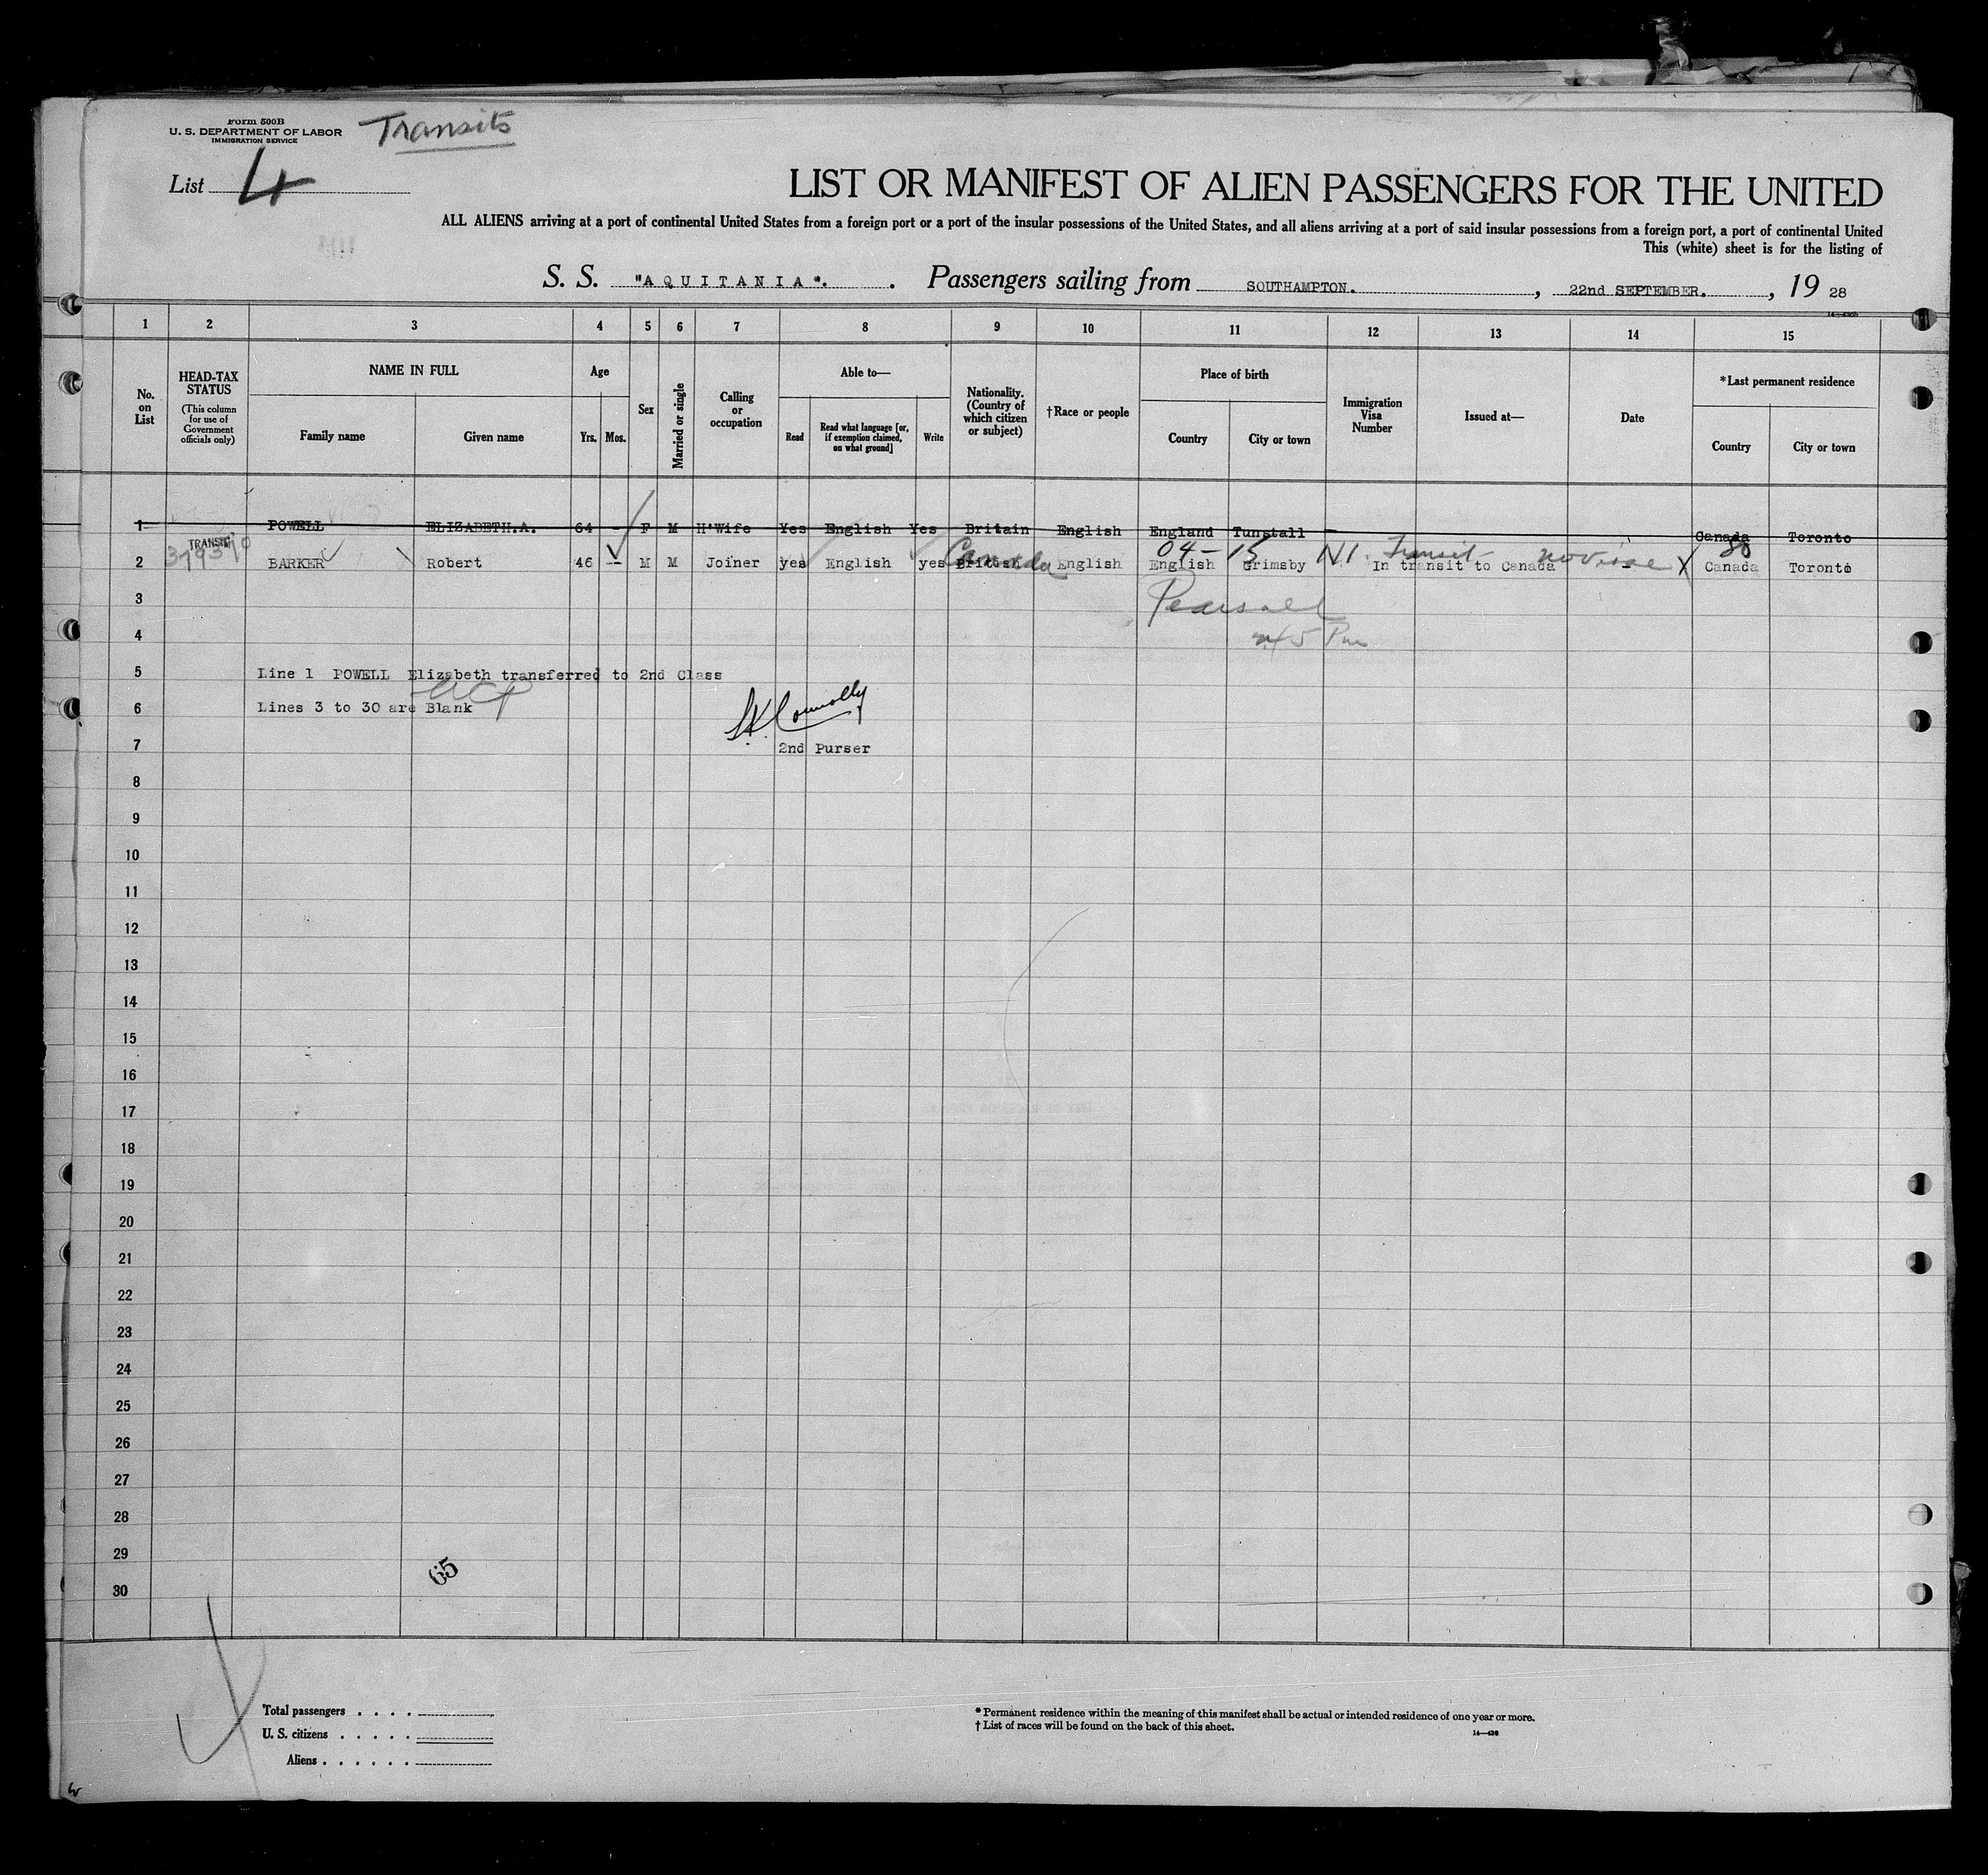 Form 500B
U. S. DEPARTMENT OF LABOR
IMMIGRATION SERVICE
Transits
List 4
LIST OR MANIFEST OF ALIEN PASSENGERS FOR THE UNITED
ALL ALIENS arriving at a port of continental United States from a foreign port or a port of the insular possessions of the United States, and all aliens arriving at a port of said insular possessions from a foreign port, a port of continental United
This (white) sheet is for the listing of
S. S. "AQUITANIA". . Passengers sailing from SOUTHAMPTON. , 22nd SEPTEMBER. , 19 28
1 2 3 4 5 6 7 8 9 10 11 12 13 14 15
No. on List
HEAD-TAX STATUS (This column for use of Government officials only)
NAME IN FULL
Family name Given name
Age
Yrs. Mos.
Sex
Married or single
Calling or occupation
Able to—
Read Read what language [or, if exemption claimed, on what ground] Write
Nationality. (Country of which citizen or subject)
†Race or people
Place of birth
Country City or town
Immigration Visa Number
Issued at—
Date
*Last permanent residence
Country City or town
1 POWELL ELIZABETH.A. 64 - F M H'Wife Yes English Yes Britain English England Tunstall — Canada Toronto
TRANSIT Canada 04-15 N.I. Transit no visa 80
2 BARKER Robert 46 -- M M Joiner yes English yes British English English Grimsby In transit to Canada - X Canada Toronto
3 Pearsall
4
5 Line 1 POWELL Elizabeth transferred to 2nd Class
6 Lines 3 to 30 are Blank
Connolly
7 2nd Purser
8
9
10
11
12
13
14
15
16
17
18
19
20
21
22
23
24
25
26
27
28
29
65
30
Total passengers . . . .
U. S. citizens . . . . .
Aliens . . . . . .
* Permanent residence within the meaning of this manifest shall be actual or intended residence of one year or more.
† List of races will be found on the back of this sheet.